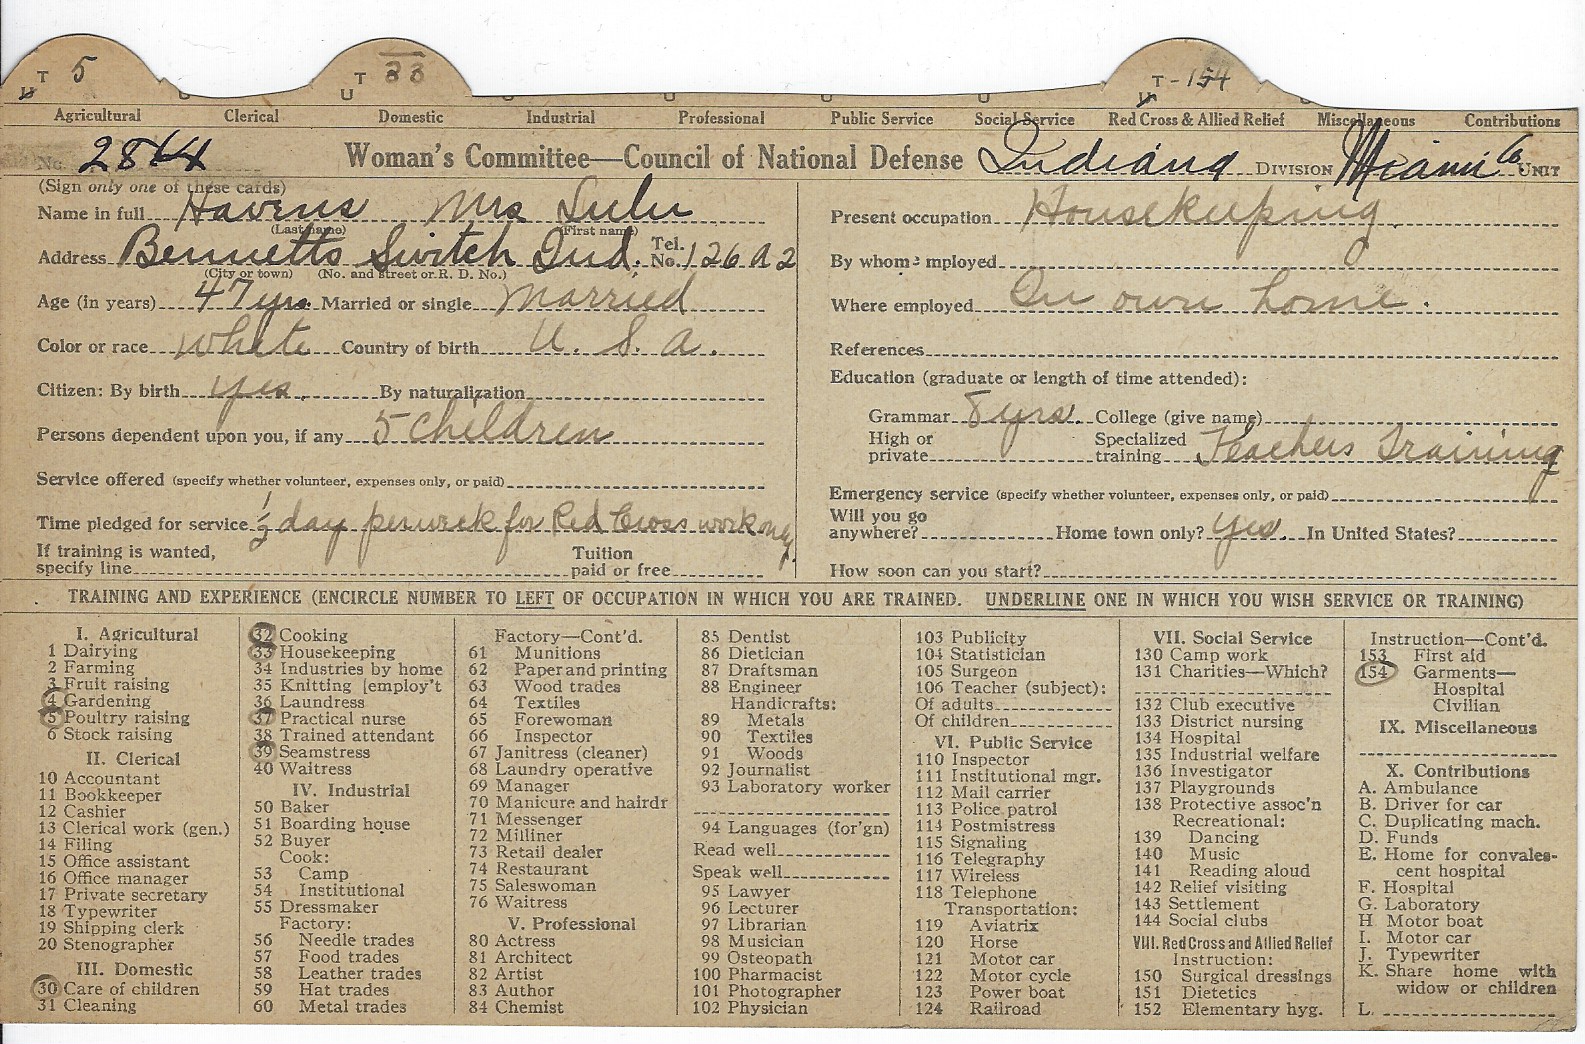 T 5 T 33 T - 154
U U U
Agricultural Clerical Domestic Industrial Professional Public Service Social Service Red Cross & Allied Relief Miscellaneous Contributions
No. 2864 Woman's Committee—Council of National Defense Indiana DIVISION Miami Co. UNIT
(Sign only one of these cards)
Name in full Havens Mrs Lulu
(Last name) (First name)
Address Bennetts Switch Ind. Tel. No. 126 A 2
(City or town) (No. and street or R. D. No.)
Age (in years) 47 yrs. Married or single Married
Color or race White Country of birth U. S. A.
Citizen: By birth yes. By naturalization
Persons dependent upon you, if any 5 children
Service offered (specify whether volunteer, expenses only, or paid)
Time pledged for service 1/2 day per week for Red Cross work only.
If training is wanted, specify line Tuition paid or free
Present occupation Housekeeping
By whom employed
Where employed In own home.
References
Education (graduate or length of time attended):
Grammar 8 yrs. College (give name)
High or private Specialized training Teachers Training
Emergency service (specify whether volunteer, expenses only, or paid)
Will you go anywhere? Home town only? Yes. In United States?
How soon can you start?
TRAINING AND EXPERIENCE (ENCIRCLE NUMBER TO LEFT OF OCCUPATION IN WHICH YOU ARE TRAINED. UNDERLINE ONE IN WHICH YOU WISH SERVICE OR TRAINING)
I. Agricultural
1 Dairying
2 Farming
3 Fruit raising
4 Gardening
5 Poultry raising
6 Stock raising
II. Clerical
10 Accountant
11 Bookkeeper
12 Cashier
13 Clerical work (gen.)
14 Filing
15 Office assistant
16 Office manager
17 Private secretary
18 Typewriter
19 Shipping clerk
20 Stenographer
III. Domestic
30 Care of children
31 Cleaning
32 Cooking
33 Housekeeping
34 Industries by home
35 Knitting [employ't
36 Laundress
37 Practical nurse
38 Trained attendant
39 Seamstress
40 Waitress
IV. Industrial
50 Baker
51 Boarding house
52 Buyer
Cook:
53 Camp
54 Institutional
55 Dressmaker
Factory:
56 Needle trades
57 Food trades
58 Leather trades
59 Hat trades
60 Metal trades
Factory—Cont'd.
61 Munitions
62 Paper and printing
63 Wood trades
64 Textiles
65 Forewoman
66 Inspector
67 Janitress (cleaner)
68 Laundry operative
69 Manager
70 Manicure and hairdr
71 Messenger
72 Milliner
73 Retail dealer
74 Restaurant
75 Saleswoman
76 Waitress
V. Professional
80 Actress
81 Architect
82 Artist
83 Author
84 Chemist
85 Dentist
86 Dietician
87 Draftsman
88 Engineer
Handicrafts:
89 Metals
90 Textiles
91 Woods
92 Journalist
93 Laboratory worker
94 Languages (for'gn)
Read well
Speak well
95 Lawyer
96 Lecturer
97 Librarian
98 Musician
99 Osteopath
100 Pharmacist
101 Photographer
102 Physician
103 Publicity
104 Statistician
105 Surgeon
106 Teacher (subject):
Of adults
Of children
VI. Public Service
110 Inspector
111 Institutional mgr.
112 Mail carrier
113 Police patrol
114 Postmistress
115 Signaling
116 Telegraphy
117 Wireless
118 Telephone
Transportation:
119 Aviatrix
120 Horse
121 Motor car
122 Motor cycle
123 Power boat
124 Railroad
VII. Social Service
130 Camp work
131 Charities—Which?
132 Club executive
133 District nursing
134 Hospital
135 Industrial welfare
136 Investigator
137 Playgrounds
138 Protective assoc'n
Recreational:
139 Dancing
140 Music
141 Reading aloud
142 Relief visiting
143 Settlement
144 Social clubs
VIII. Red Cross and Allied Relief
Instruction:
150 Surgical dressings
151 Dietetics
152 Elementary hyg.
Instruction—Cont'd.
153 First aid
154 Garments—
Hospital
Civilian
IX. Miscellaneous
X. Contributions
A. Ambulance
B. Driver for car
C. Duplicating mach.
D. Funds
E. Home for convales-
cent hospital
F. Hospital
G. Laboratory
H Motor boat
I. Motor car
J. Typewriter
K. Share home with
widow or children
L.